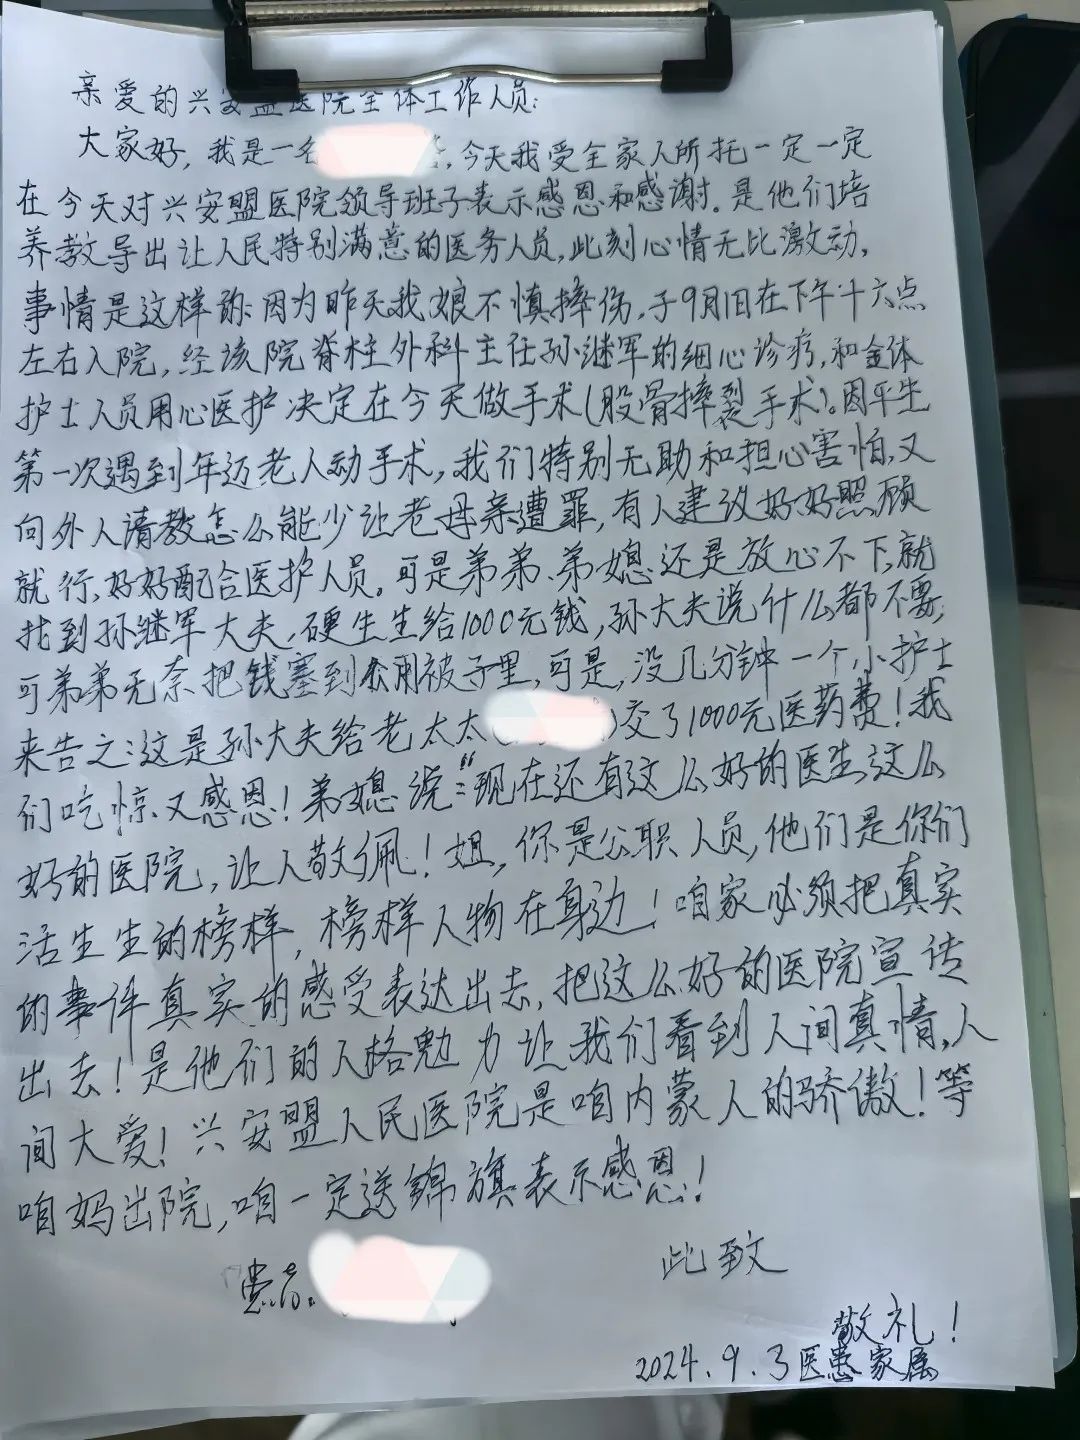 亲爱的兴安盟医院全体工作人员:
大家好，我是一名，今天我受全家人所托一定一定
在今天对兴安盟医院领导班子表示感恩和感谢。是他们培
养教导出让人民特别满意的医务人员，此刻心情无比激动，
事情是这样的:因为昨天我娘不慎摔伤，于9月1日在下午十六点
左右入院，经该院脊柱外科主任孙继军的细心诊疗，和全体
护士人员用心医护决定在今天做手术(股骨摔裂手术)。因平生
第一次遇到年迈老人动手术，我们特别无助和担心害怕，又
向外人请教怎么能少让老母亲遭罪，有人建议好好照顾
就行，好好配合医护人员。可是弟弟、弟媳还是放心不下，就
找到孙继军大夫，硬生生给1000元钱，孙大夫说什么都不要，
可弟弟无奈把钱塞到被子里，可是，没几分钟一个小护士
来告之:这是孙大夫给老太太交了1000元医药费！我
们吃惊又感恩！弟媳说:“现在还有这么好的医生，这么
好的医院，让人敬佩！姐，你是公职人员，他们是你们
活生生的榜样，榜样人物在身边！咱家必须把真实
的事件真实的感受表达出去，把这么好的医院宣传
出去！是他们的人格勉力让我们看到人间真情，人
间大爱！兴安盟人民医院是咱内蒙人的骄傲！等
咱妈出院，咱一定送锦旗表示感恩！
此致
患者:
敬礼！
2024.9.3医患家属